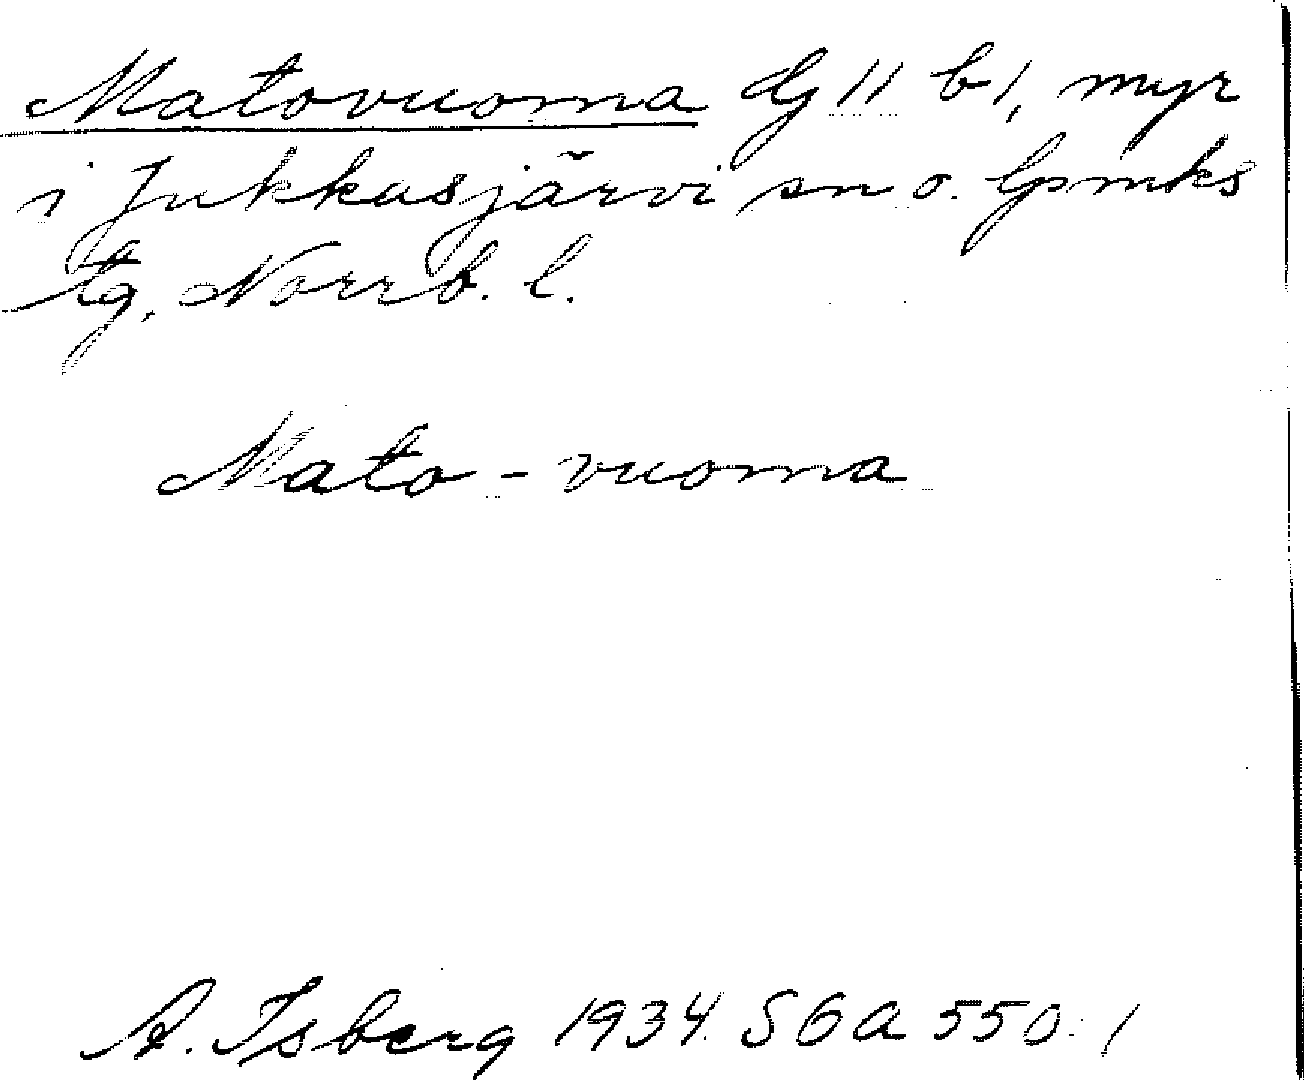 Matovuoma Dg 11 b1, myr
i Jukkasjärvi sn o. lpmks
tg, Norrb. l.
Mato-vuoma
A. Isberg 1934. SGA 550:1